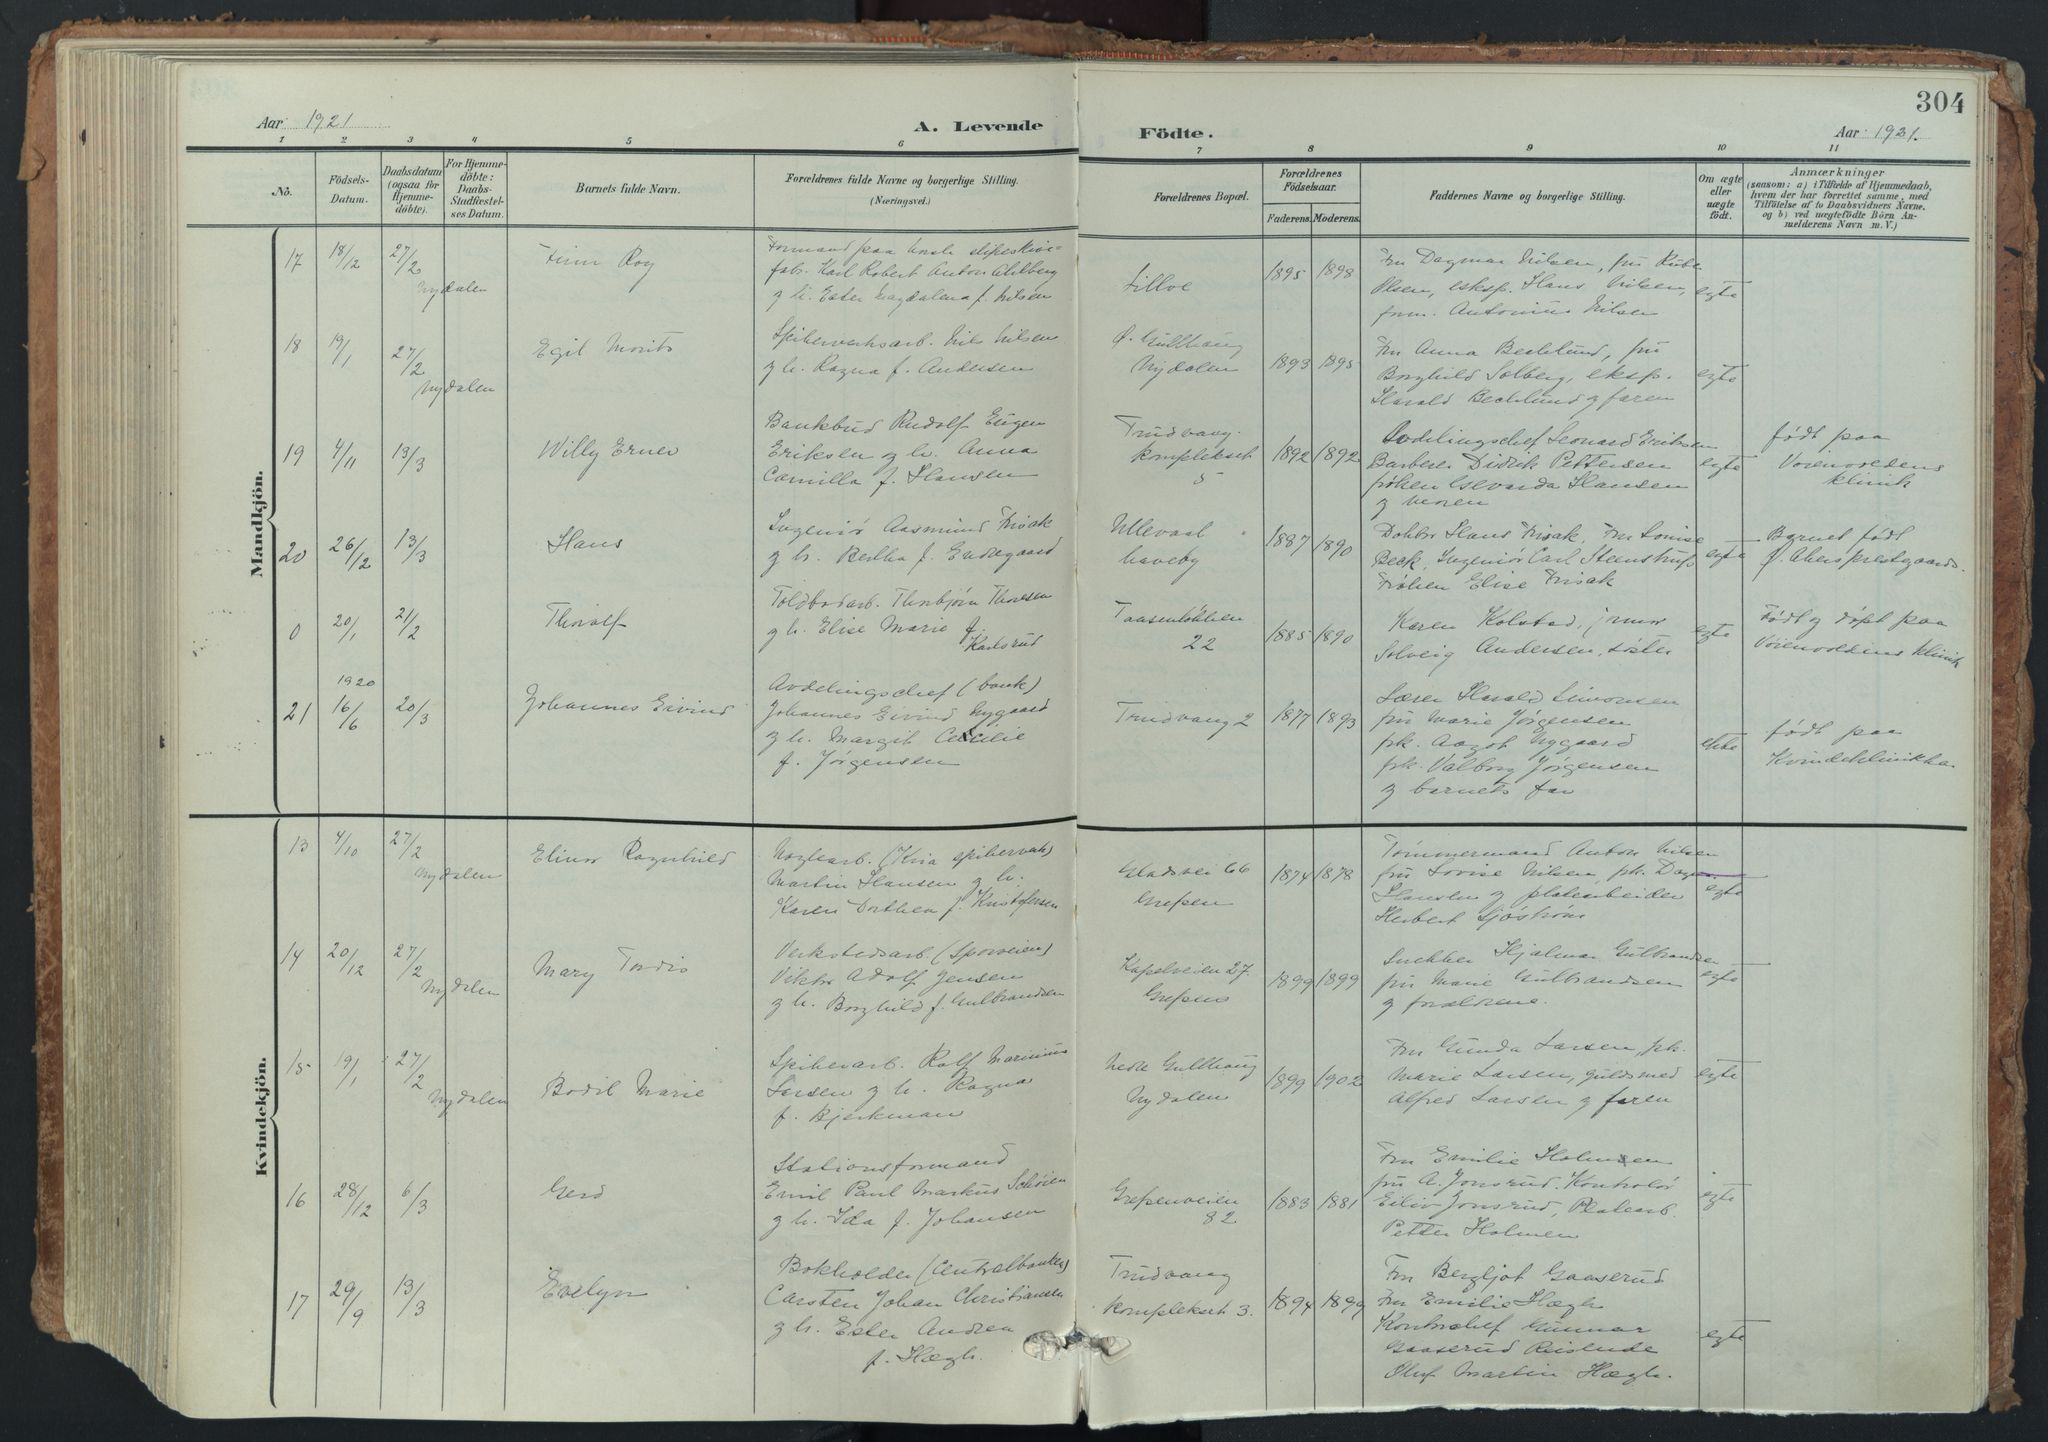 304
Aar 1921
A. Levende
Födte.
Aar 1921.
1 2 3 4 5 6 7 8 9 10 11
No.
Födsels-
Datum.
Daabsdatum
(ogsaa for
Hjemme-
döbte).
For Hjemme-
döbte:
Daabs-
Stadfæstel-
ses Datum.
Barnets fulde Navn.
Forældrenes fulde Navne og borgerlige Stilling.
(Næringsvei.)
Forældrenes Bopæl.
Forældrenes
Födselsaar.
Faderens. Moderens.
Faddernes Navne og borgerlige Stilling.
Om ægte
eller
uægte
födt.
Anmærkninger
(saasom: a) i Tilfælde af Hjemmedaab,
hvem der har forrettet samme, med
Tilföielse af to Daabsvidners Navne.
og b) ved uægtefödte Börn An-
melderens Navn m. V.)
Mandkjön.
17 18/2 27/2
Nydalen
Finn Roy
Formand paa
fab. Karl Robert Anton Ahlberg
g h. Ester Magdalena f. Nilsen
Lilloe
1895 1898
Fru Dagmar Nilsen, fru
Olsen, eksp. Hans Nilsen,
form. Antonius Nilsen
egte
18 19/1 27/2
Nydalen
Egil Morits
Spikerverksarb. Nils Nilsen
g h. Ragna f. Andersen
Ø. Gullhaug
Nydalen
1893 1895
Fru Anna Becklund, fru
Borghild Solberg, eksp.
Harald Becklund g faren
egte
19 4/11 13/3
Willy Erner
Bankbud Rudolf Eugen
Eriksen og h. Anna
Camilla f. Hansen
Trudvang-
komplekset
5
1892 1892
Avdelingschef Leonard Eriksen
Barberer Didrik Pettersen
frøken Hansen
g moren
egte
født paa
Voienvoldens
klinik
20 26/12 13/3
Hans
Ingeniør Aasmund Frisak
g h. Bertha f. Endregaard
Ullevaal
haveby
1887 1890
Doktor Hans Frisak, Fru Louise
Beck, Ingeniør Carl Steenstrup
Frøken Elise Frisak
egte
Barnet født
Ø. Akers prestegaard.
0 20/1 21/2
Thoralf
Toldbodarb. Thorbjørn Thoresen
g h. Elise Marie f.
Karlsrud
Taasenløkken
22
1885 1890
Karen Kolstad, jmor
Solveig Andersen, søster
egte
Født g døpt paa
Voienvoldens klinik
1920
21 16/6 20/3
Johannes Eivind
Avdelingschef (bank)
Johannes Eivind Nygaard
g h. Margit Cecilie
f. Jørgensen
Trudvang 2
1877 1893
Lærer Harald Simonsen
fru Marie Jørgensen
frk. Aagot Nygaard
frk. Valborg Jørgensen
g barnets far
ekte
født paa
Kvindeklinikken
Kvindekjön.
13 4/10 27/2
Nydalen
Elinor Ragnhild
(Kria spikerverk)
Martin Hansen g h.
Karen Dorthea f. Kristofersen
Gladsvei 66
Grefsen
1874 1878
Tømmermand Anton Nilsen
fru Lovise Nilsen, frk. Dagm.
Hansen og platearbeider
Herbert Sjøstrøm
egte
14 20/12 27/2
Nydalen
Mary Tordis
Verkstedsarb. (Sporveien)
Viktor Adolf Jensen
g h. Borghild f. Gulbrandsen
Kapelveien 27.
Grefsen
1899 1899
Snekker Hjalmar Gulbrandsen
fru Marie Gulbrandsen
g forældrene.
egte
15 19/1 27/2
Nydalen
Bodil Marie
Spikerarb. Rolf Marinius
Larsen g h. Ragna
f. Bjerkman
Nedre Gullhaug
Nydalen
1899 1902
Fru Gunda Larsen, frk.
Marie Larsen, guldsmed
Alfred Larsen g faren
egte
16 28/12 6/3
Gerd
Stationsformand
Emil Paul Markus Schøien
g h. Ida f. Johansen
Grefsenveien
82
1883 1881
Fru Emilie Holmen
fru A. Jonsrud. Kontrolør
Eiliv Jonsrud, Platearb.
Petter Holmen
egte
17 29/9 13/3
Evelyn
Bokholder (Centralbanken)
Carsten Johan Christiansen
g h. Ester Andrea
f. Hægh.
Trudvang
komplekset 3.
1894 1899
Fru Bergljot Gaaserud
Fru Emilie Hægh
Kontorchef Gunnar
Gaaserud
Oluf Martin Hægh.
egte